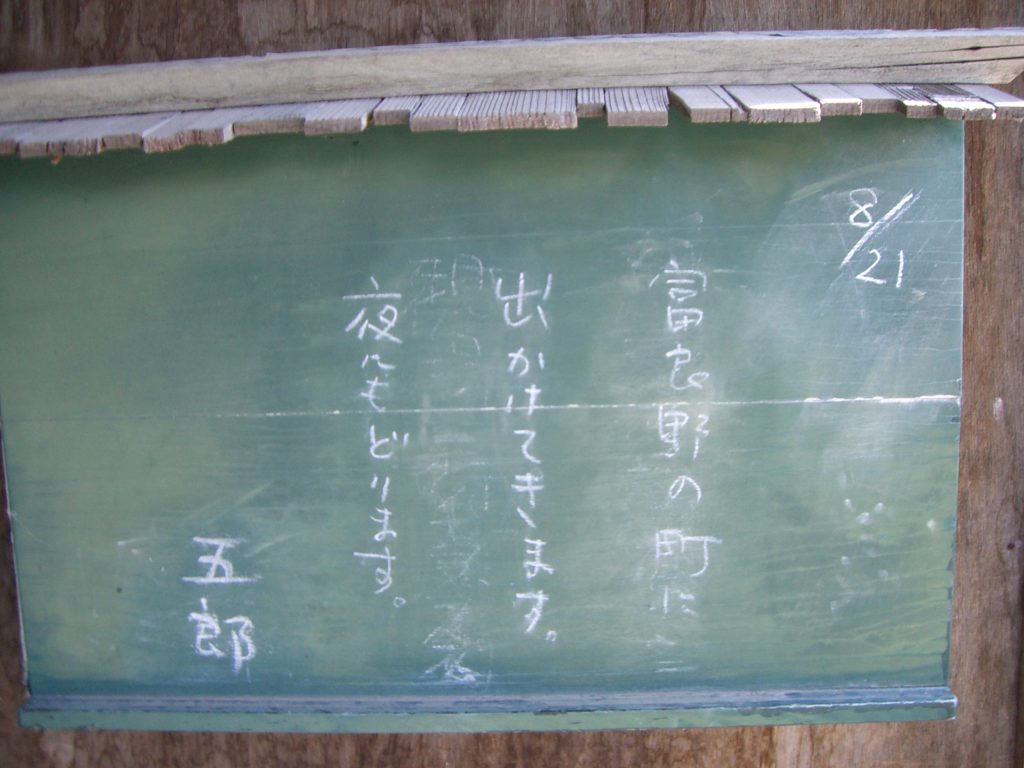 8/21
富良野の町に
出かけてきます。
夜にもどります。
五郎